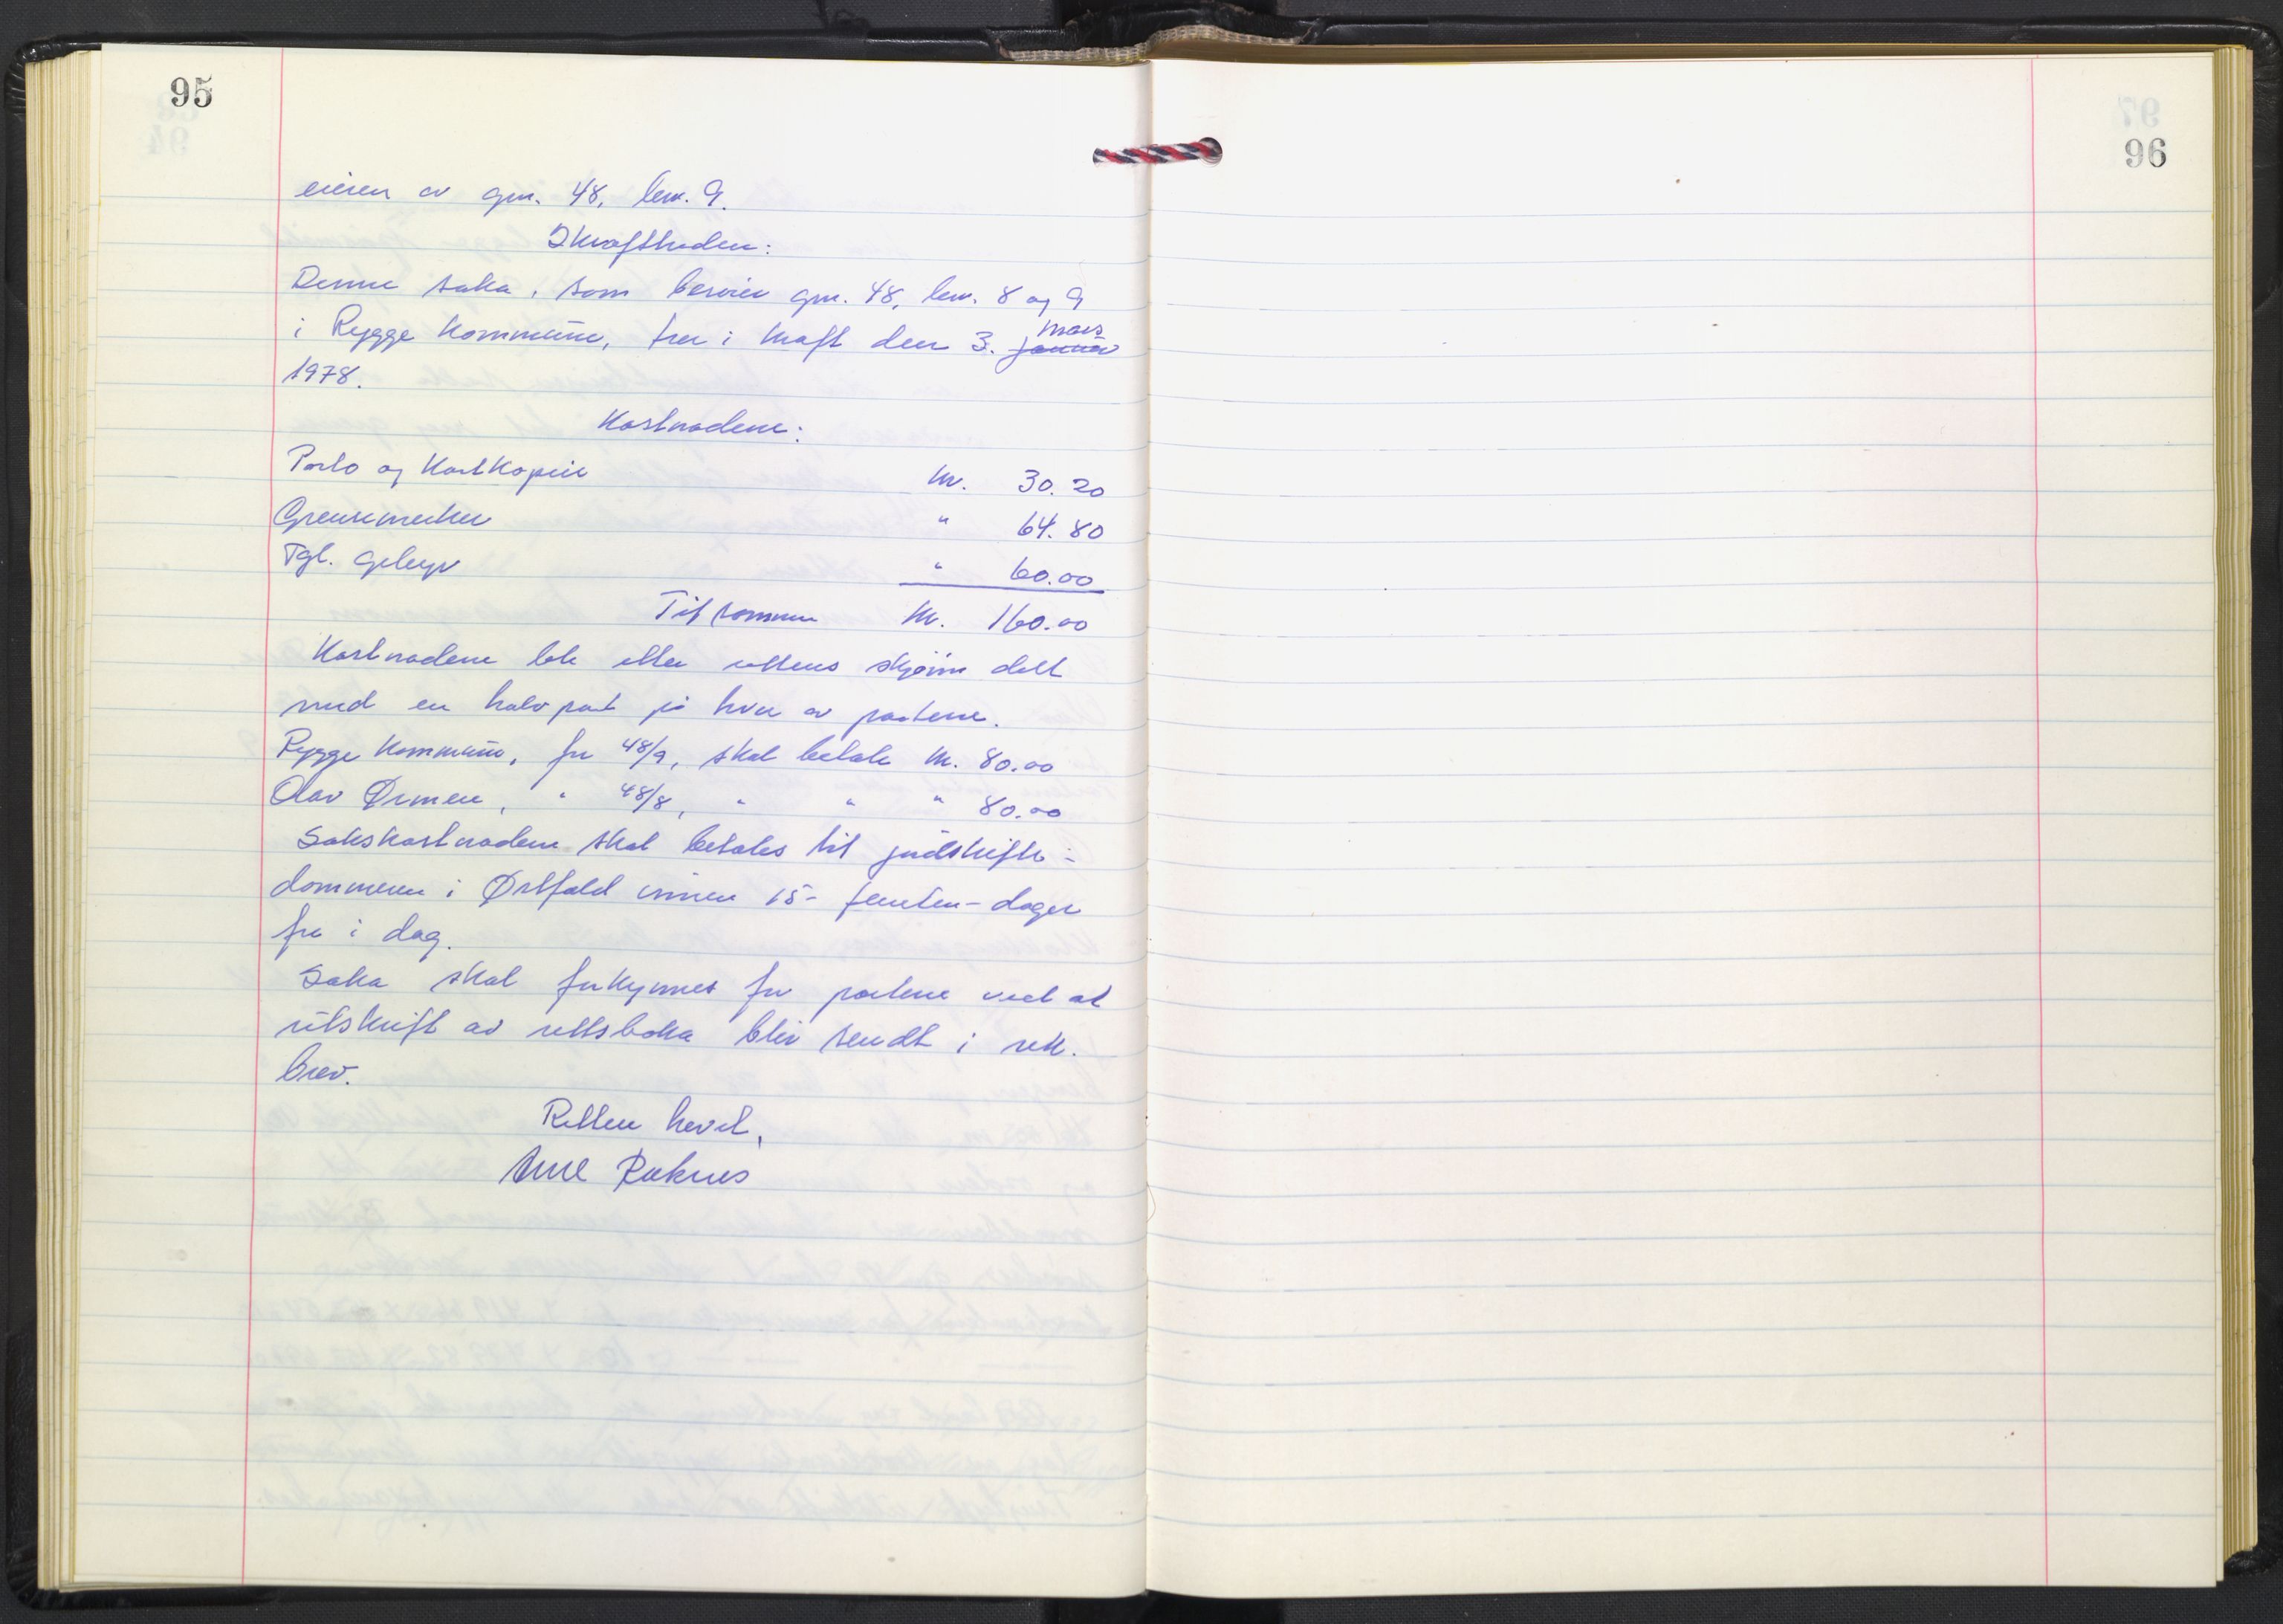 95
96
eieren av gnr. 48, bnr. 9.
Ikrafttreden:
Denne saka, som berører gnr. 48, bnr. 8 og 9
mars
i Rygge kommune, trer i kraft den 3. januar
1978.
Kostnadene:
Porto og kartkopier kr. 30.20
Grensemerker " 64.80
Tgl. gebyr " 60.00
Tilsammen kr. 160.00
Kostnadene ble etter rettens skjønn delt
med en halvpart på hver av partene.
Rygge kommune, for 48/9, skal betale kr. 80.00
Olav Ørmen, " 48/8, " " " 80.00
Sakskostnadene skal betales til jordskifte-
dommeren i Østfold innen 15- femten- dager
fra i dag.
Saka skal forkynnes for partene ved at
utskrift av rettsboka blir sendt i rek.
brev.
Retten hevet,
Arne Raknes